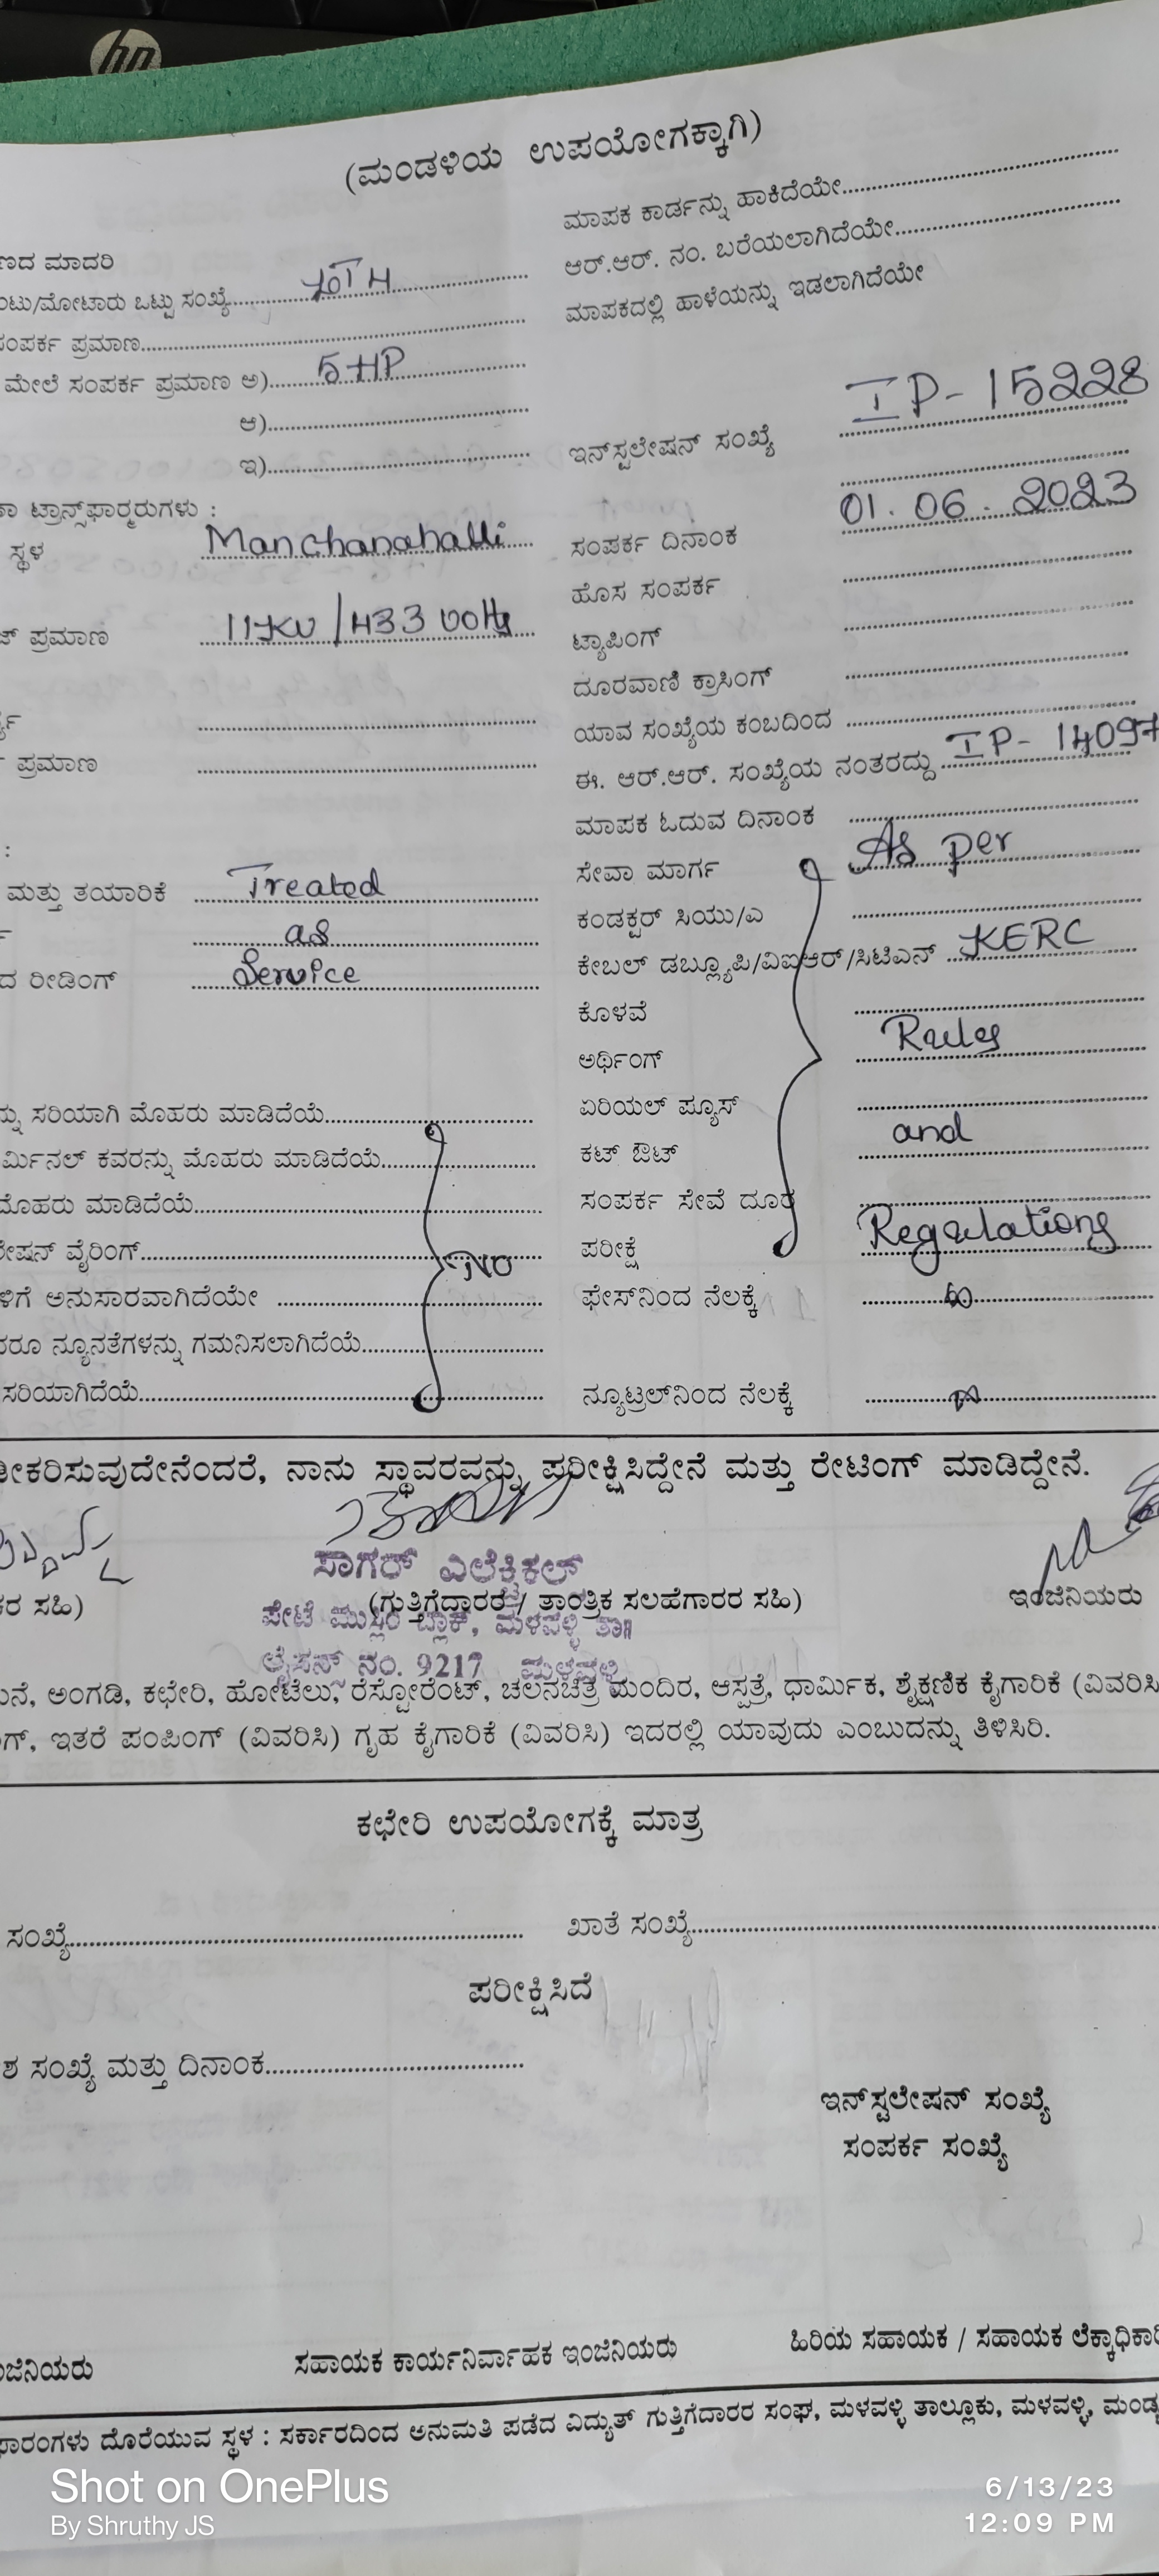 hp
(ಮಂಡಳಿಯ ಉಪಯೋಗಕ್ಕಾಗಿ)
ಮಾಪಕ ಕಾರ್ಡನ್ನು ಹಾಕಿದೆಯೇ
ಣದ ಮಾದರಿ
ಆರ್.ಆರ್. ನಂ. ಬರೆಯಲಾಗಿದೆಯೇ
ಂಟು/ಮೋಟಾರು ಒಟ್ಟು ಸಂಖ್ಯೆ
ಮಾಪಕದಲ್ಲಿ ಹಾಳೆಯನ್ನು ಇಡಲಾಗಿದೆಯೇ
ಸಂಪರ್ಕ ಪ್ರಮಾಣ
ಮೇಲೆ ಸಂಪರ್ಕ ಪ್ರಮಾಣ ಅ) 5 HP
ಆ)
ಇ)
ಇನ್‌ಸ್ಟಲೇಷನ್ ಸಂಖ್ಯೆ IP-15228
ಟ್ರಾನ್ಸ್‌ಫಾರ್ಮರುಗಳು :
ಸ್ಥಳ Manchanahalli
ಸಂಪರ್ಕ ದಿನಾಂಕ 01.06.2023
ಹೊಸ ಸಂಪರ್ಕ
ಜ್ ಪ್ರಮಾಣ 11KV/433 Volts
ಟ್ಯಾಪಿಂಗ್
ದೂರವಾಣಿ ಕ್ರಾಸಿಂಗ್
ಯಾವ ಸಂಖ್ಯೆಯ ಕಂಬದಿಂದ
ಪ್ರಮಾಣ
ಈ. ಆರ್.ಆರ್. ಸಂಖ್ಯೆಯ ನಂತರದ್ದು IP-14097
ಮಾಪಕ ಓದುವ ದಿನಾಂಕ
:
ಸೇವಾ ಮಾರ್ಗ As per
ಮತ್ತು ತಯಾರಿಕೆ Treated
ಕಂಡಕ್ಟರ್ ಸಿಯು/ಎ
as
ಕೇಬಲ್ ಡಬ್ಲ್ಯೂಪಿ/ವಿಐಆರ್/ಸಿಟಿಎನ್ KERC
ದ ರೀಡಿಂಗ್ Service
ಕೊಳವೆ
ಅರ್ಥಿಂಗ್ Rules
ನ್ನು ಸರಿಯಾಗಿ ಮೊಹರು ಮಾಡಿದೆಯೆ
ಏರಿಯಲ್ ಪ್ಯೂಸ್
ರ್ಮಿನಲ್ ಕವರನ್ನು ಮೊಹರು ಮಾಡಿದೆಯೆ
ಕಟ್ ಔಟ್ and
ಮೊಹರು ಮಾಡಿದೆಯೆ
ಸಂಪರ್ಕ ಸೇವೆ ದೂರ
ೇಷನ್ ವೈರಿಂಗ್ NO
ಪರೀಕ್ಷೆ Regulations
ಳಿಗೆ ಅನುಸಾರವಾಗಿದೆಯೇ
ಫೇಸ್‌ನಿಂದ ನೆಲಕ್ಕೆ
ದರೂ ನ್ಯೂನತೆಗಳನ್ನು ಗಮನಿಸಲಾಗಿದೆಯೆ
ಸರಿಯಾಗಿದೆಯೆ
ನ್ಯೂಟ್ರಲ್‌ನಿಂದ ನೆಲಕ್ಕೆ
ೀಕರಿಸುವುದೇನೆಂದರೆ, ನಾನು ಸ್ಥಾವರವನ್ನು ಪರೀಕ್ಷಿಸಿದ್ದೇನೆ ಮತ್ತು ರೇಟಿಂಗ್ ಮಾಡಿದ್ದೇನೆ.
ಸಾಗರ್ ಎಲೆಕ್ಟ್ರಿಕಲ್
ಕರ ಸಹಿ) (ಗುತ್ತಿಗೆದ್ದಾರರ / ತಾಂತ್ರಿಕ ಸಲಹೆಗಾರರ ಸಹಿ) ಇಂಜಿನಿಯರು
ಪೇಟೆ ಮುಸ್ಲಿಂ ಬ್ಲಾಕ್, ಮಳವಳ್ಳಿ ತಾ॥
ಲೈಸನ್ಸ್ ನಂ. 9217 ಮಳವಳ್ಳಿ
ುನೆ, ಅಂಗಡಿ, ಕಛೇರಿ, ಹೋಟೆಲು, ರೆಸ್ಟೋರೆಂಟ್, ಚಲನಚಿತ್ರ ಮಂದಿರ, ಆಸ್ಪತ್ರೆ, ಧಾರ್ಮಿಕ, ಶೈಕ್ಷಣಿಕ ಕೈಗಾರಿಕೆ (ವಿವರಿಸಿ
ಗ್, ಇತರೆ ಪಂಪಿಂಗ್ (ವಿವರಿಸಿ) ಗೃಹ ಕೈಗಾರಿಕೆ (ವಿವರಿಸಿ) ಇದರಲ್ಲಿ ಯಾವುದು ಎಂಬುದನ್ನು ತಿಳಿಸಿರಿ.
ಕಛೇರಿ ಉಪಯೋಗಕ್ಕೆ ಮಾತ್ರ
ಸಂಖ್ಯೆ ಖಾತೆ ಸಂಖ್ಯೆ
ಪರೀಕ್ಷಿಸಿದೆ
ಶ ಸಂಖ್ಯೆ ಮತ್ತು ದಿನಾಂಕ
ಇನ್‌ಸ್ಟಲೇಷನ್ ಸಂಖ್ಯೆ
ಸಂಪರ್ಕ ಸಂಖ್ಯೆ
ಂಜಿನಿಯರು ಸಹಾಯಕ ಕಾರ್ಯನಿರ್ವಾಹಕ ಇಂಜಿನಿಯರು ಹಿರಿಯ ಸಹಾಯಕ / ಸಹಾಯಕ ಲೆಕ್ಕಾಧಿಕಾರಿ
ಫಾರಂಗಳು ದೊರೆಯುವ ಸ್ಥಳ : ಸರ್ಕಾರದಿಂದ ಅನುಮತಿ ಪಡೆದ ವಿದ್ಯುತ್ ಗುತ್ತಿಗೆದಾರರ ಸಂಘ, ಮಳವಳ್ಳಿ ತಾಲ್ಲೂಕು, ಮಳವಳ್ಳಿ, ಮಂಡ್ಯ
Shot on OnePlus
By Shruthy JS
6/13/23
12:09 PM